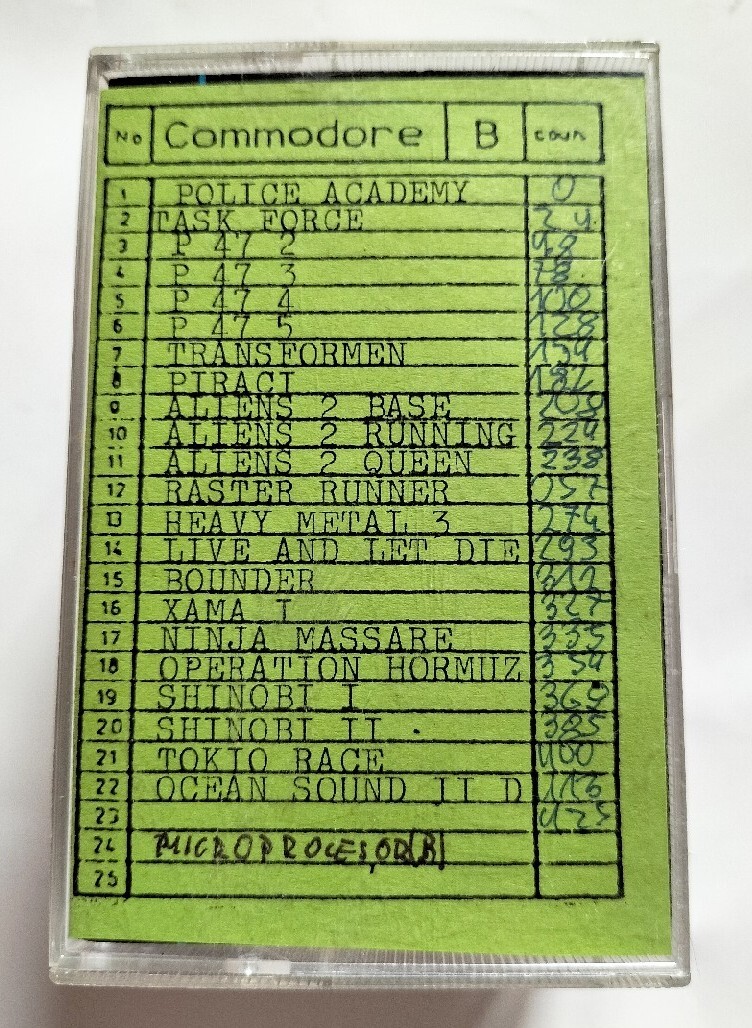 No Commodore B coun
1 POLICE ACADEMY 0
2 TASK FORCE 24
3 P 47 2 48
4 P 47 3 78
5 P 47 4 100
6 P 47 5 128
7 TRANSFORMEN 154
8 PIRACI 182
9 ALIENS 2 BASE 209
10 ALIENS 2 RUNNING 224
11 ALIENS 2 QUEEN 238
12 RASTER RUNNER 257
13 HEAVY METAL 3 274
14 LIVE AND LET DIE 293
15 BOUNDER 312
16 XAMA I 327
17 NINJA MASSARE 335
18 OPERATION HORMUZ 354
19 SHINOBI I 369
20 SHINOBI II . 385
21 TOKIO RACE 400
22 OCEAN SOUND II D 413
23
24 MICROPROCESOR(B)
25